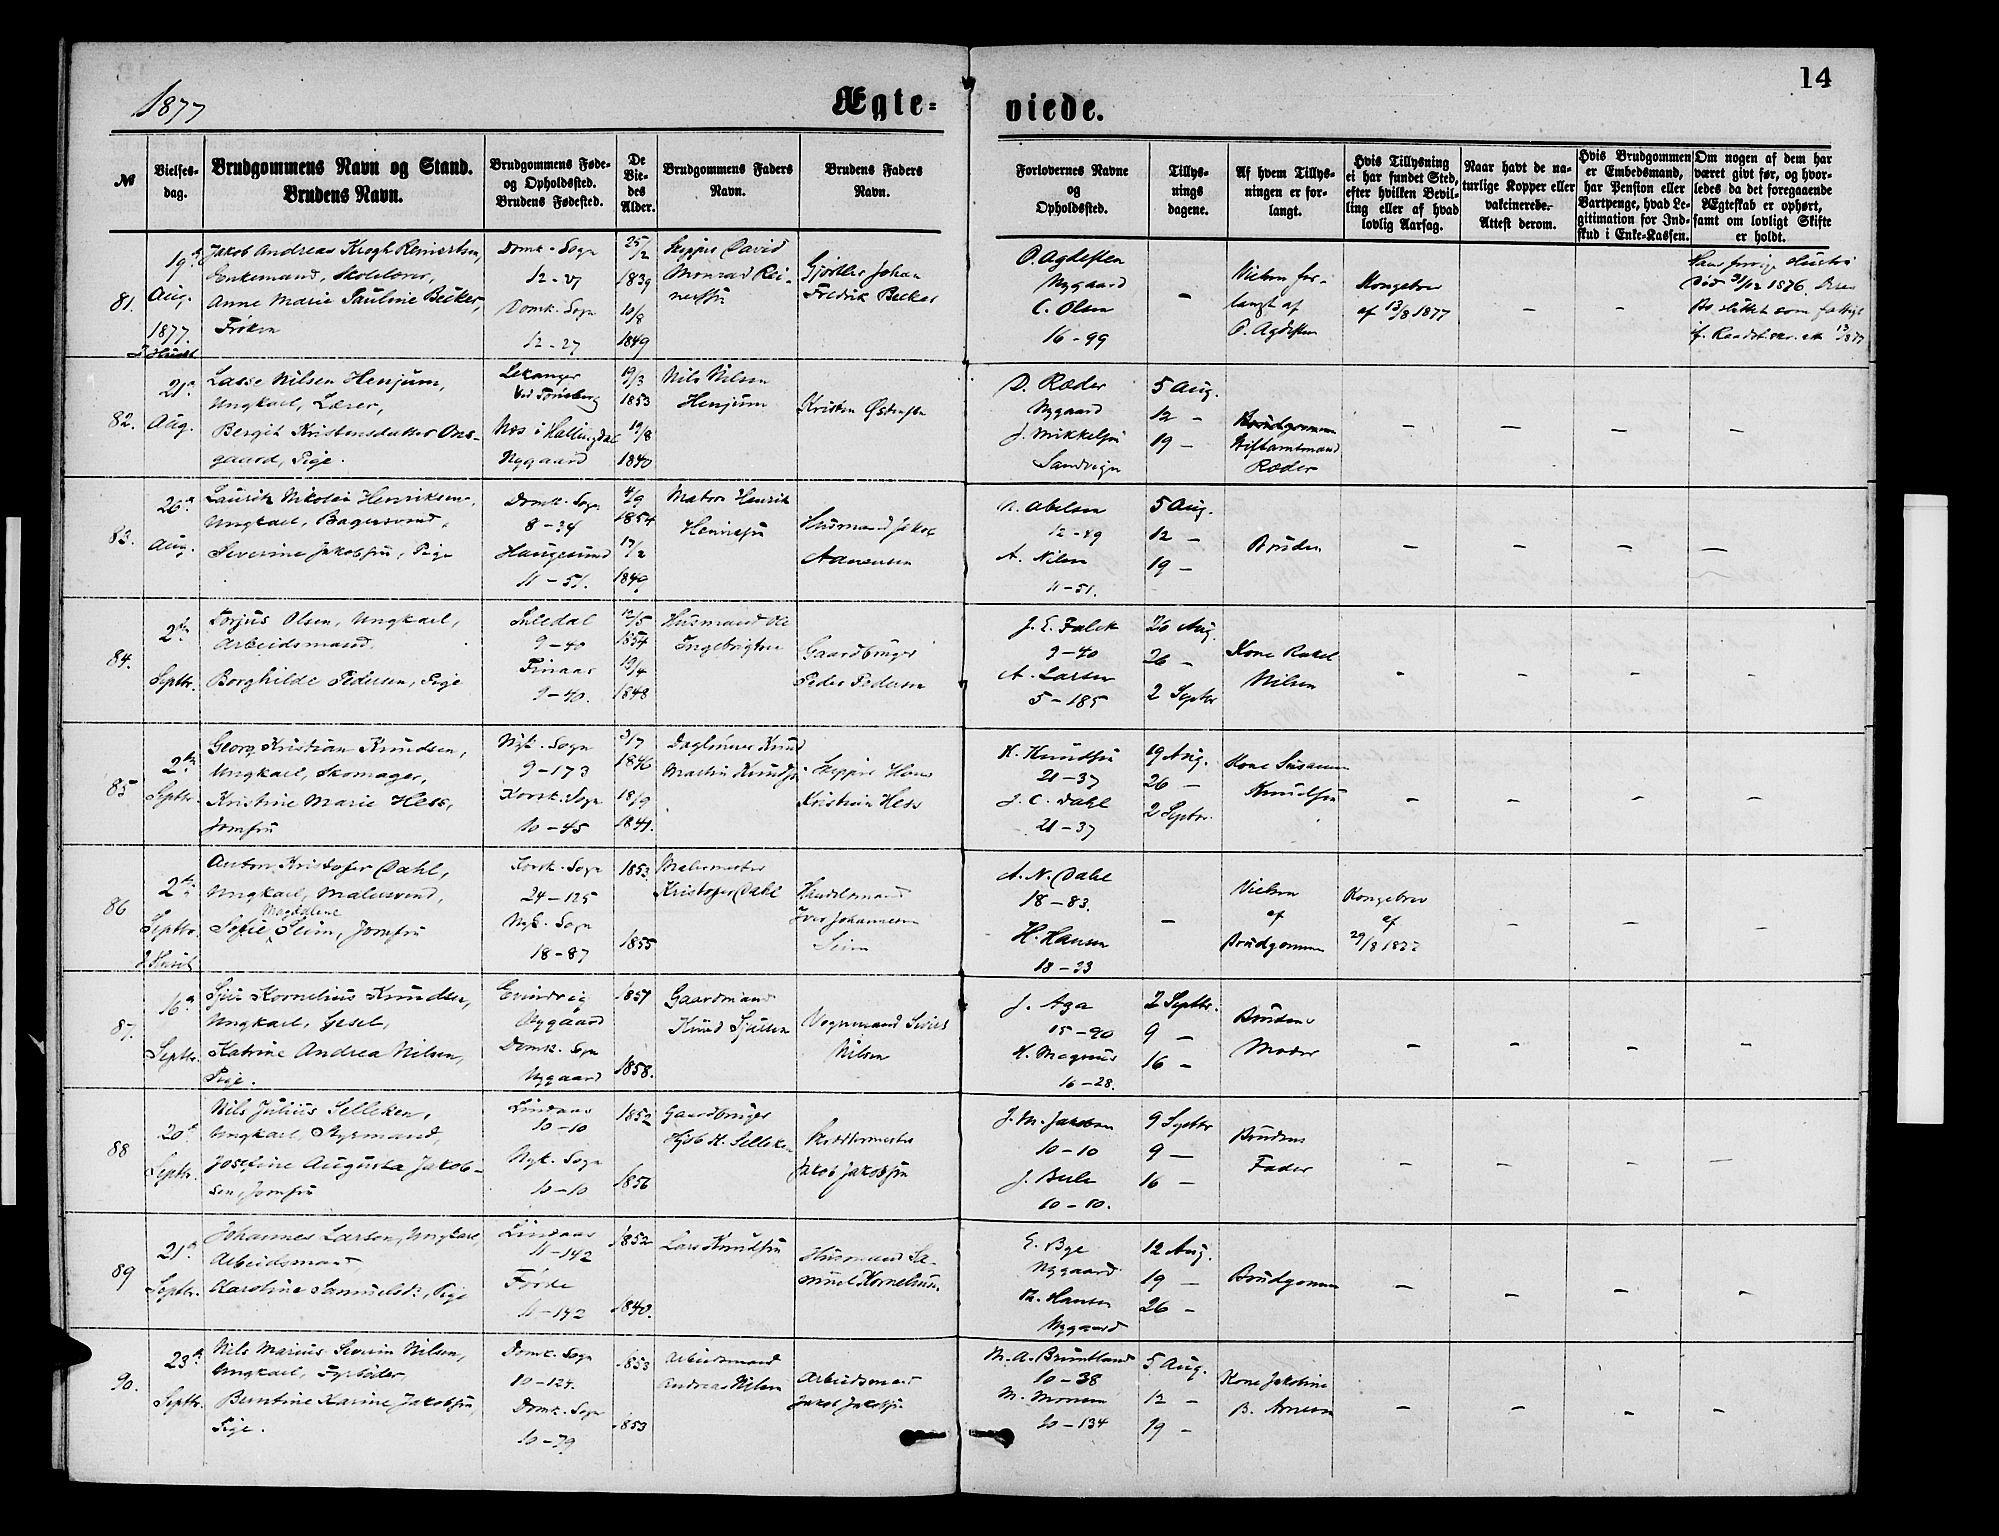 1877
Ægte-
viede.
14
№
Vielses-
dag.
Brudgommens Navn og Stand.
Brudens Navn.
Brudgommens Føde-
og Opholdssted.
Brudens Fødested.
De
Vie-
des
Alder.
Brudgommens Faders
Navn.
Brudens Faders
Navn.
Forlovernes Navne
og
Opholdssted.
Tillys-
nings
dagene.
Af hvem Tillys-
ningen er for-
langt.
Hvis Tillysning
ei har fundet Sted,
efter hvilken Bevil-
ling eller af hvad
lovlig Aarsag.
Naar havt de na-
turlige Kopper eller
vakcinerede.
Attest derom.
Hvis Brudgommen
er Embedsmand,
har Pension eller
Vartpenge, hvad Le-
gitimation for Ind-
skud i Enke-Kassen.
Om nogen af dem har
været givt før, og hvor-
ledes da det foregaaende
Ægteskab er ophørt,
samt om lovligt Skifte
er holdt.
81.
19
Aug.
1877.
Jakob Andreas Krogh
Enkemand, Skolelærer,
Anne Marie Pauline Becker,
Frøken
Domk. Sogn
12-27
Domk. Sogn
12-27
25/2
1839
10/8
1849
Skipper David
Monrad Rei-
Gjørtler Johan
Fredrik Becker
O. Agdesten
Nygaard
C. Olsen
16-99
-
Vielsen for-
langt af
O. Agdesten
Kongebrev
af 13/8 1877
-
-
Hans forrige Hustru
død 31/12 1876.
82.
21
Aug.
Lasse Nilsen Henjum,
Ungkarl, Lærer,
Bergit Kristensdatter Ons-
gaard, Pige.
Lekanger
Nes i Hallingdal
Nygaard
19/3
1853
19/8
1840
Nils Nilsen
Henjum
Kristen
D. Ræder
Nygaard
J. Mikkelsen
Sandvigen
5 Aug.
12 -
19 -
Brudgommen
Stiftamtmand
Ræder
-
-
-
-
83.
26
Aug.
Lauritz Nikolai Henriksen,
Ungkarl, Bagersvend,
Severine Jakobsen, Pige
Domk. Sogn
8-34
Haugesund
11-51.
4/9
1854
17/2
1849
Matros Henrik
Henriksen
Husmand Jakob
A. Abelsen
12-49
A. Nilsen
11-51.
5 Aug.
12 -
19 -
Bruden
-
-
-
-
84.
2
Septbr.
Torjus Olsen, Ungkarl,
Arbeidsmand.
Borghilde Pedersen, Pige
Suledal
9-40
Finaas
9-40.
12/5
1854
19/4
1848
Husmand Ole
Ingebrigtsen
Gaardbruger
Peder Pedersen
J. E. Falck
9-40
A. Larsen
5-185
26 Aug.
26 -
2 Septbr
Kone Rakel
Nilsen
-
-
-
-
85
2
Septbr.
Georg Kristian Knudsen,
Ungkarl, Skomager,
Kristine Marie Hess,
Jomfru
Nyk. Sogn
9-173
Korsk. Sogn
10-45
3/7
1846
18/9
1841.
Daglønner Knud
Martin Knudsen
Skipper Hans
Kristian Hess
K. Knudsen
21-37
J. C. Dahl
21-37
19 Aug.
26 -
2 Septbr.
Kone Susanne
Knudsen
-
-
-
-
86
2
Septbr.
Anton Kristofer Dahl,
Ungkarl, Malersvend,
Magdalene
Sofie Seim, Jomfru
Korsk. Sogn
24-125
Nyk. Sogn
18-87
1853.
1855
Malermester
Kristofer Dahl
Handelsmand
Iver Johannesen
Seim
A. N. Dahl
18-83.
H. Hansen
18-33
-
Vielsen
af
Brudgommen
Kongebrev
af
29/8 1877
-
-
-
87.
16
Septbr.
Sjur Kornelius Knudsen,
Ungkarl, Gesel,
Katrine Andrea Nilsen,
Pige.
Evindvig
Nygaard
Domk. Sogn
Nygaard
1851
1858.
Gaardmand
Knud Sjursen
Vognmand Sivert
Nilsen
J. Aga
15-90
K. Magnus
16-28.
2 Septbr.
9 -
16 -
Brudens
Moder
-
-
-
-
88
20
Septbr.
Nils Julius Selleken,
Ungkarl, Styrmand,
Josefine Augusta Jakob-
sen, Jomfru
Lindaas
10-10
Nyk. Sogn
10-10
1852
1856
Gaardbruger
H. Selleken
Skreddermester
Jakob Jakobsen
J. M. Jakobsen
10-10
J. Bule
10-10.
9 Septbr
9 -
16 -
Brudens
Fader
-
-
-
-
89
21
Septbr.
Johannes Larsen, Ungkarl,
Arbeidsmand
Karoline Samuelsd:, Pige
Lindaas
11-142
Førde
11-142
1852
1840.
Lars Knudsen
Husmand Sa-
muel Kornelius.
E. Bye
Nygaard
Th. Hansen
Nygaard
12 Aug.
19 -
26 -
Brudgommen
-
-
-
-
90.
23
Septbr.
Nils Marius Severin Nilsen,
Ungkarl, Fyrbøder,
Berntine Karine Jakobsen,
Pige.
Domk. Sogn
10-124.
Domk. Sogn
10-79
1853
1853
Arbeidsmand
Andreas Nilsen
Arbeidsmand
Jakob Jakobsen
M. A. Bruntland
10-38
M. Monsen
20-134
5 Aug.
12 -
19 -
Kone Jakobine
B. Arnesen
-
-
-
-